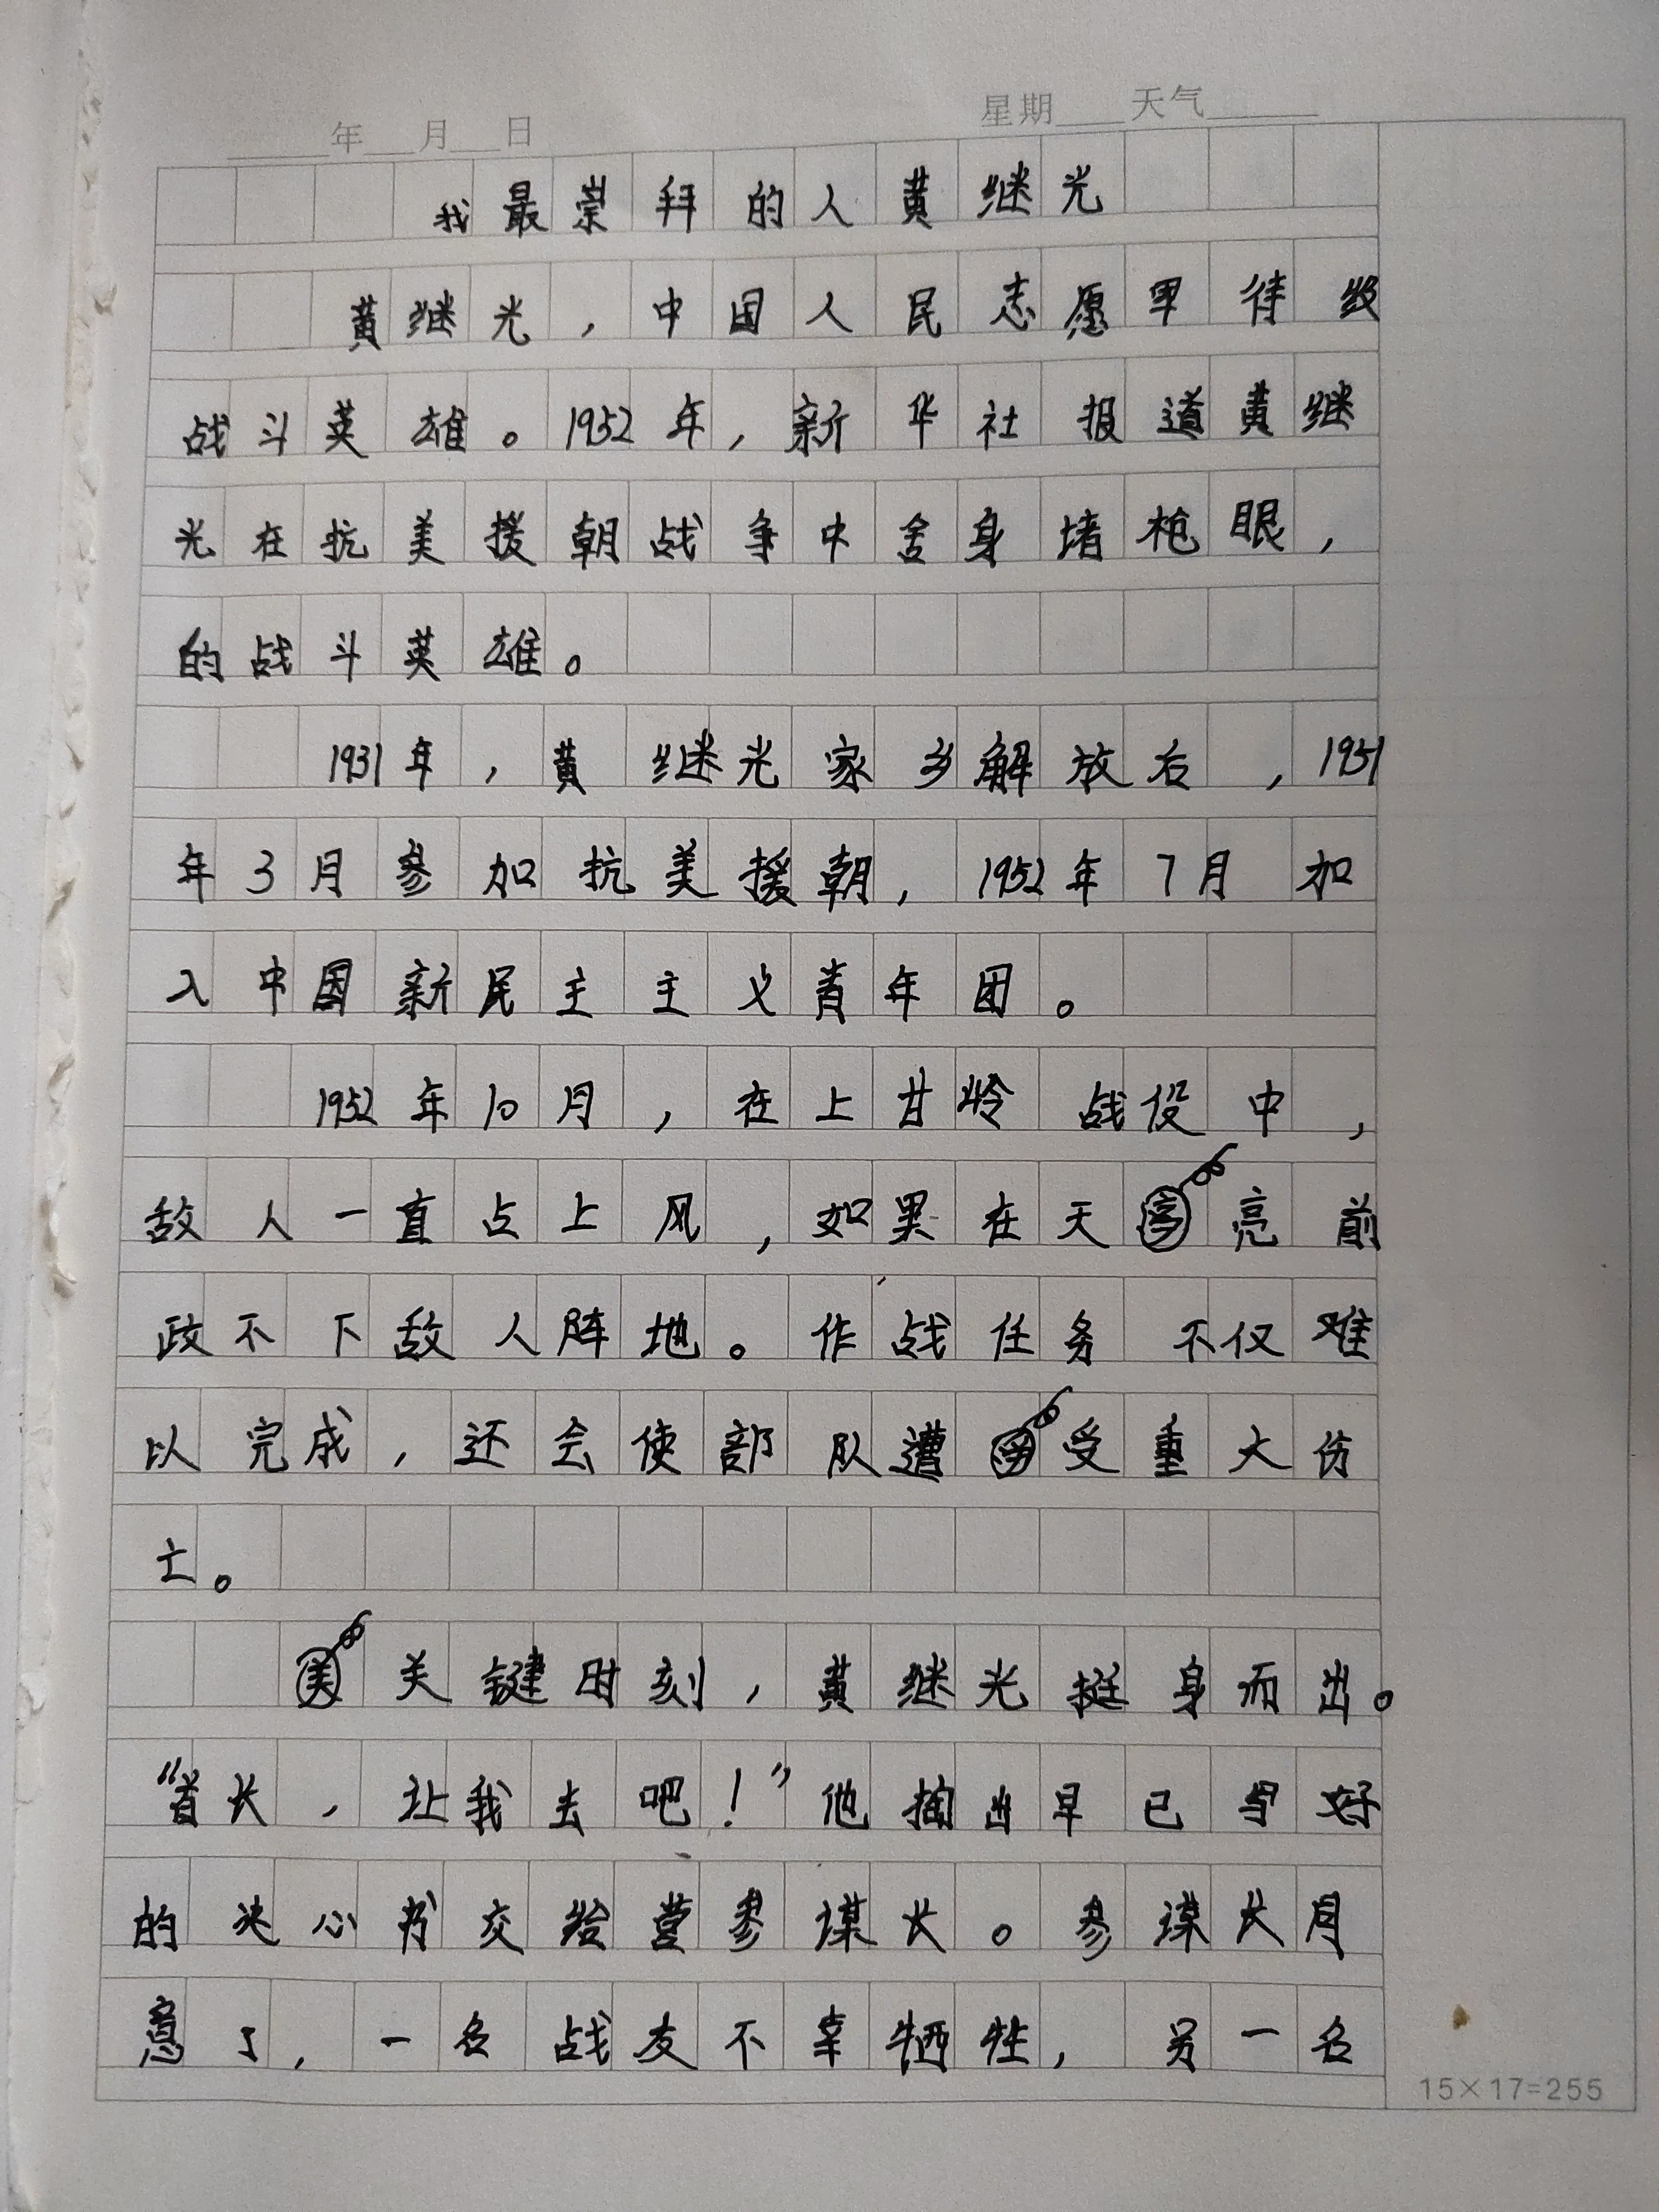 年 月 日 星期 天气
我最崇拜的人黄继光
黄继光，中国人民志愿军待级
战斗英雄。1952年，新华社报道黄继
光在抗美援朝战争中舍身堵枪眼，
的战斗英雄。
1931年，黄继光家乡解放后，1951
年3月参加抗美援朝，1952年7月加
入中国新民主主义青年团。
1952年10月，在上甘岭战役中，
敌人一直占上风，如果在天亮前
政不下敌人阵地。作战任务不仅难
以完成，还会使部队遭受重大伤
亡。
关键时刻，黄继光挺身而出。
“首长，让我去吧！”他掏出早已写好
的决心书交给营参谋长。参谋长同
意了，一名战友不幸牺牲，另一名
15×17=255